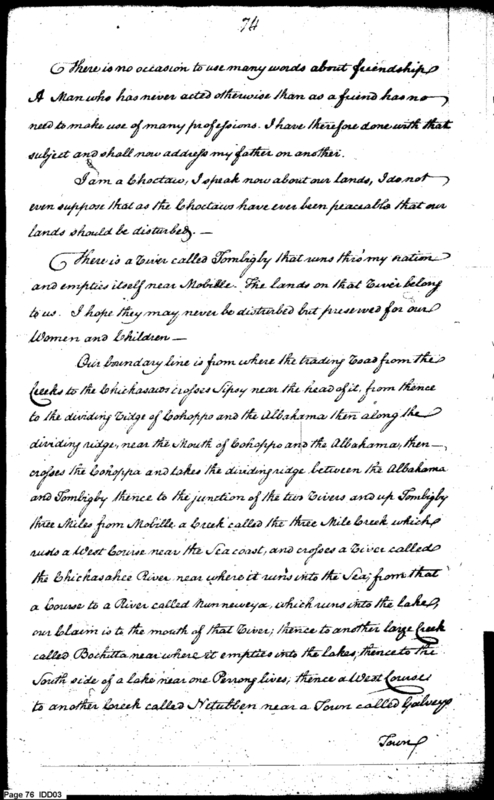 74
There is no occasion to use many words about friendship
A Man who has never acted otherwise than as a friend has no
need to make use of many professions. I have therefore done with that
subject and shall now address my father on another.
I am a Choctaw, I speak now about our lands, I do not
even suppose that as the Choctaws have ever been peaceable that our
lands should be disturbed. —
There is a River called Tombigby that runs thro' my nation
and empties itself near Mobille. The lands on that River belong
to us. I hope they may never be disturbed but preserved for our
Women and Children —
Our boundary line is from where the trading Road from the
Creeks to the Chickasaws crosses Sipsy near the head of it, from thence
to the dividing Ridge of Cohoppo and the Albahama then along the
dividing ridge, near the Mouth of Cohoppo and the Albahama, then —
crosses the Cohoppa and takes the dividing ridge between the Albahama
and Tombigby thence to the junction of the two Rivers and up Tombigby
three Miles from Mobille a Creek called the three Mile Creek which
runs a West Course near the Sea coast, and crosses a River called
the Chichasahee River near where it runs into the Sea; from that
a Course to a River called Nunneweya, which runs into the lake,
our Claim is to the mouth of that River; thence to another large Creek
called Bochitta near where it empties into the lakes, thence to the
South side of a lake near one Perrong lives; thence a West Course
to another Creek called Nitubben near a Town called Galveys
Town
Page 76 IDD03